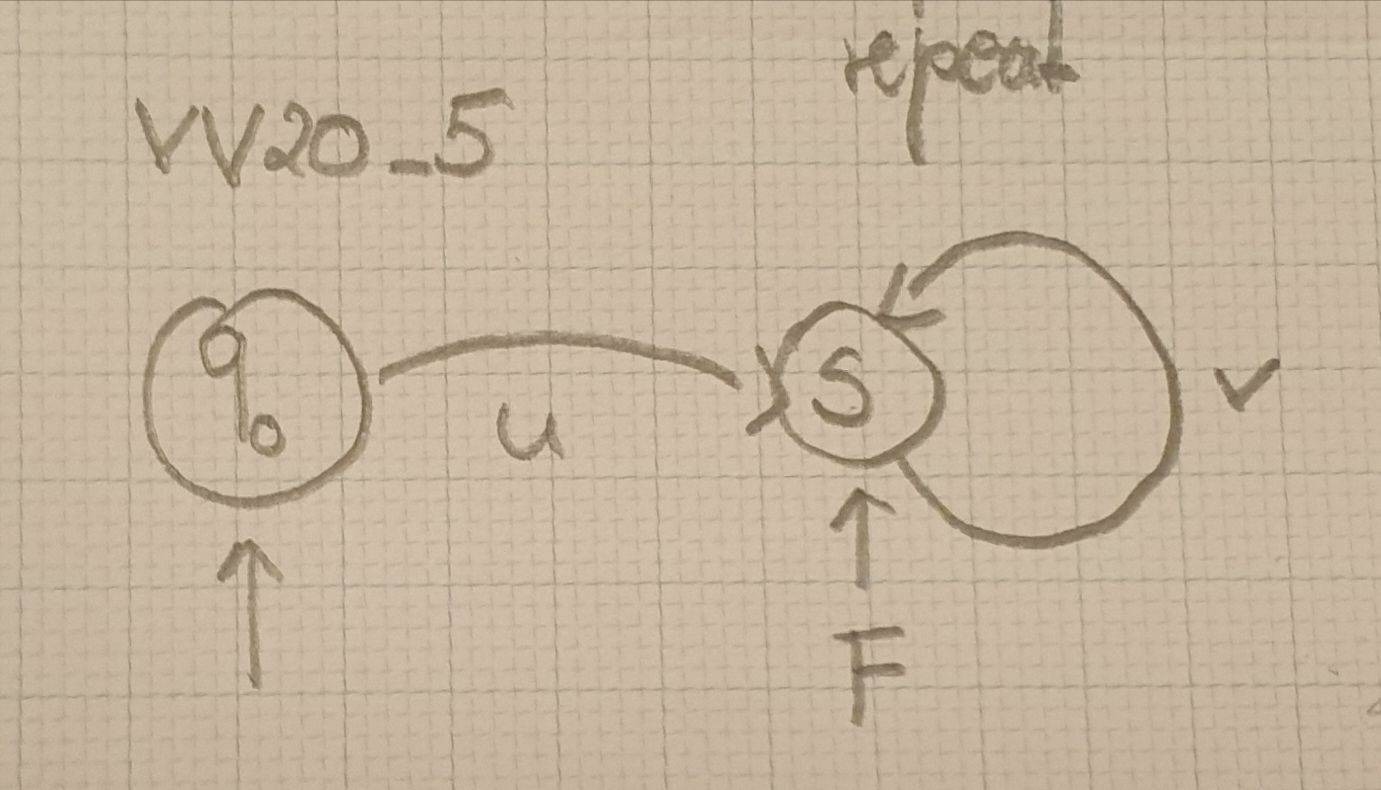 repeat
VV20_5
q0 u S v
F